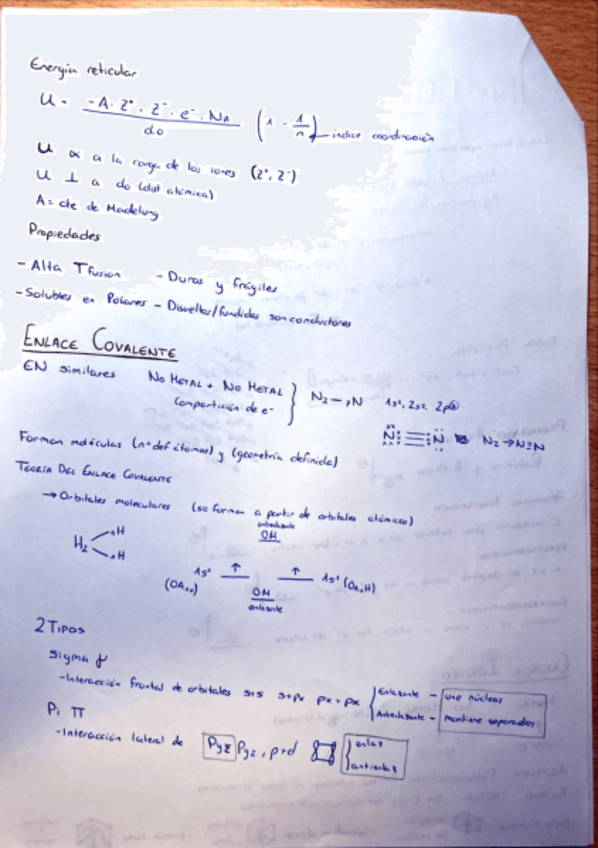 Energía reticular
U = -A · Z⁺ · Z⁻ · e⁻ · NA / do (1 - 1/n) → indice coordinación
U ∝ a la carga de los iones (Z⁺, Z⁻)
U ⊥ a do (dist atómica)
A = cte de Madelung
Propiedades
- Alta Tfusion - Duros y frágiles
- Solubles en Polares - Disueltos/fundidos son conductores
ENLACE COVALENTE
EN similares NO METAL + NO METAL } N₂ → N 1s², 2s², 2p³
Compartición de e⁻
N≡N N₂ → N≡N
Forman moléculas (nº def átomos) y (geometría definida)
TEORÍA DEL ENLACE COVALENTE
→ Orbitales moleculares (se forman a partir de orbitales atómicos)
antienlazante
OM
H₂ H H
1s¹ ↑ ↑ 1s¹ (OA₁ₛH)
(OA₁ₛ) OM
enlazante
2 TIPOS
Sigma
- Interacción frontal de orbitales s+s s+px px+px { Enlazante - une núcleos
Antienlazante - mantiene separados
Pi π
- Interacción lateral de Py Pz, p+d { enlaz
antienlaz